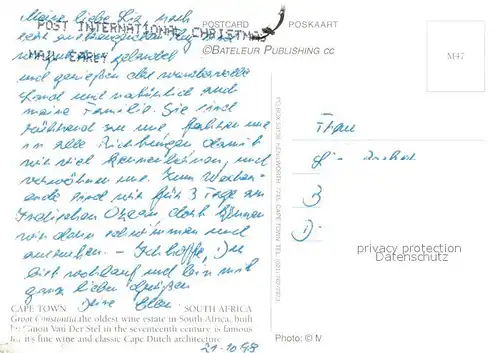 Meine liebe Liz, nach
POSTCARD POSKAART
POST INTERNATIONAL CHRISTMAS
MAIL EARLY
©BATELEUR PUBLISHING CC
M47
gelandet
und genießen das wundervolle
Land und natürlich auch
meine Familie. Sie sind
rührend zu uns, fahren uns
in alle Richtungen damit
wir viel kennenlernen, und
verwöhnen uns. Zum Wochen-
ende sind wir für 3 Tage am
Indischen Ozean, dort können
wir dann schwimmen und
ausruhen. – Ich hoffe, Du
bist wohlauf und bin mit
ganz lieben Grüßen
Deine Ellen
Frau
D-
privacy protection
Datenschutz
CAPE TOWN SOUTH AFRICA
Groot Constantia, the oldest wine estate in South Africa, built
by Simon Van Der Stel in the seventeenth century is famous
for its fine wine and classic Cape Dutch architecture
Photo: © M
21.10.98